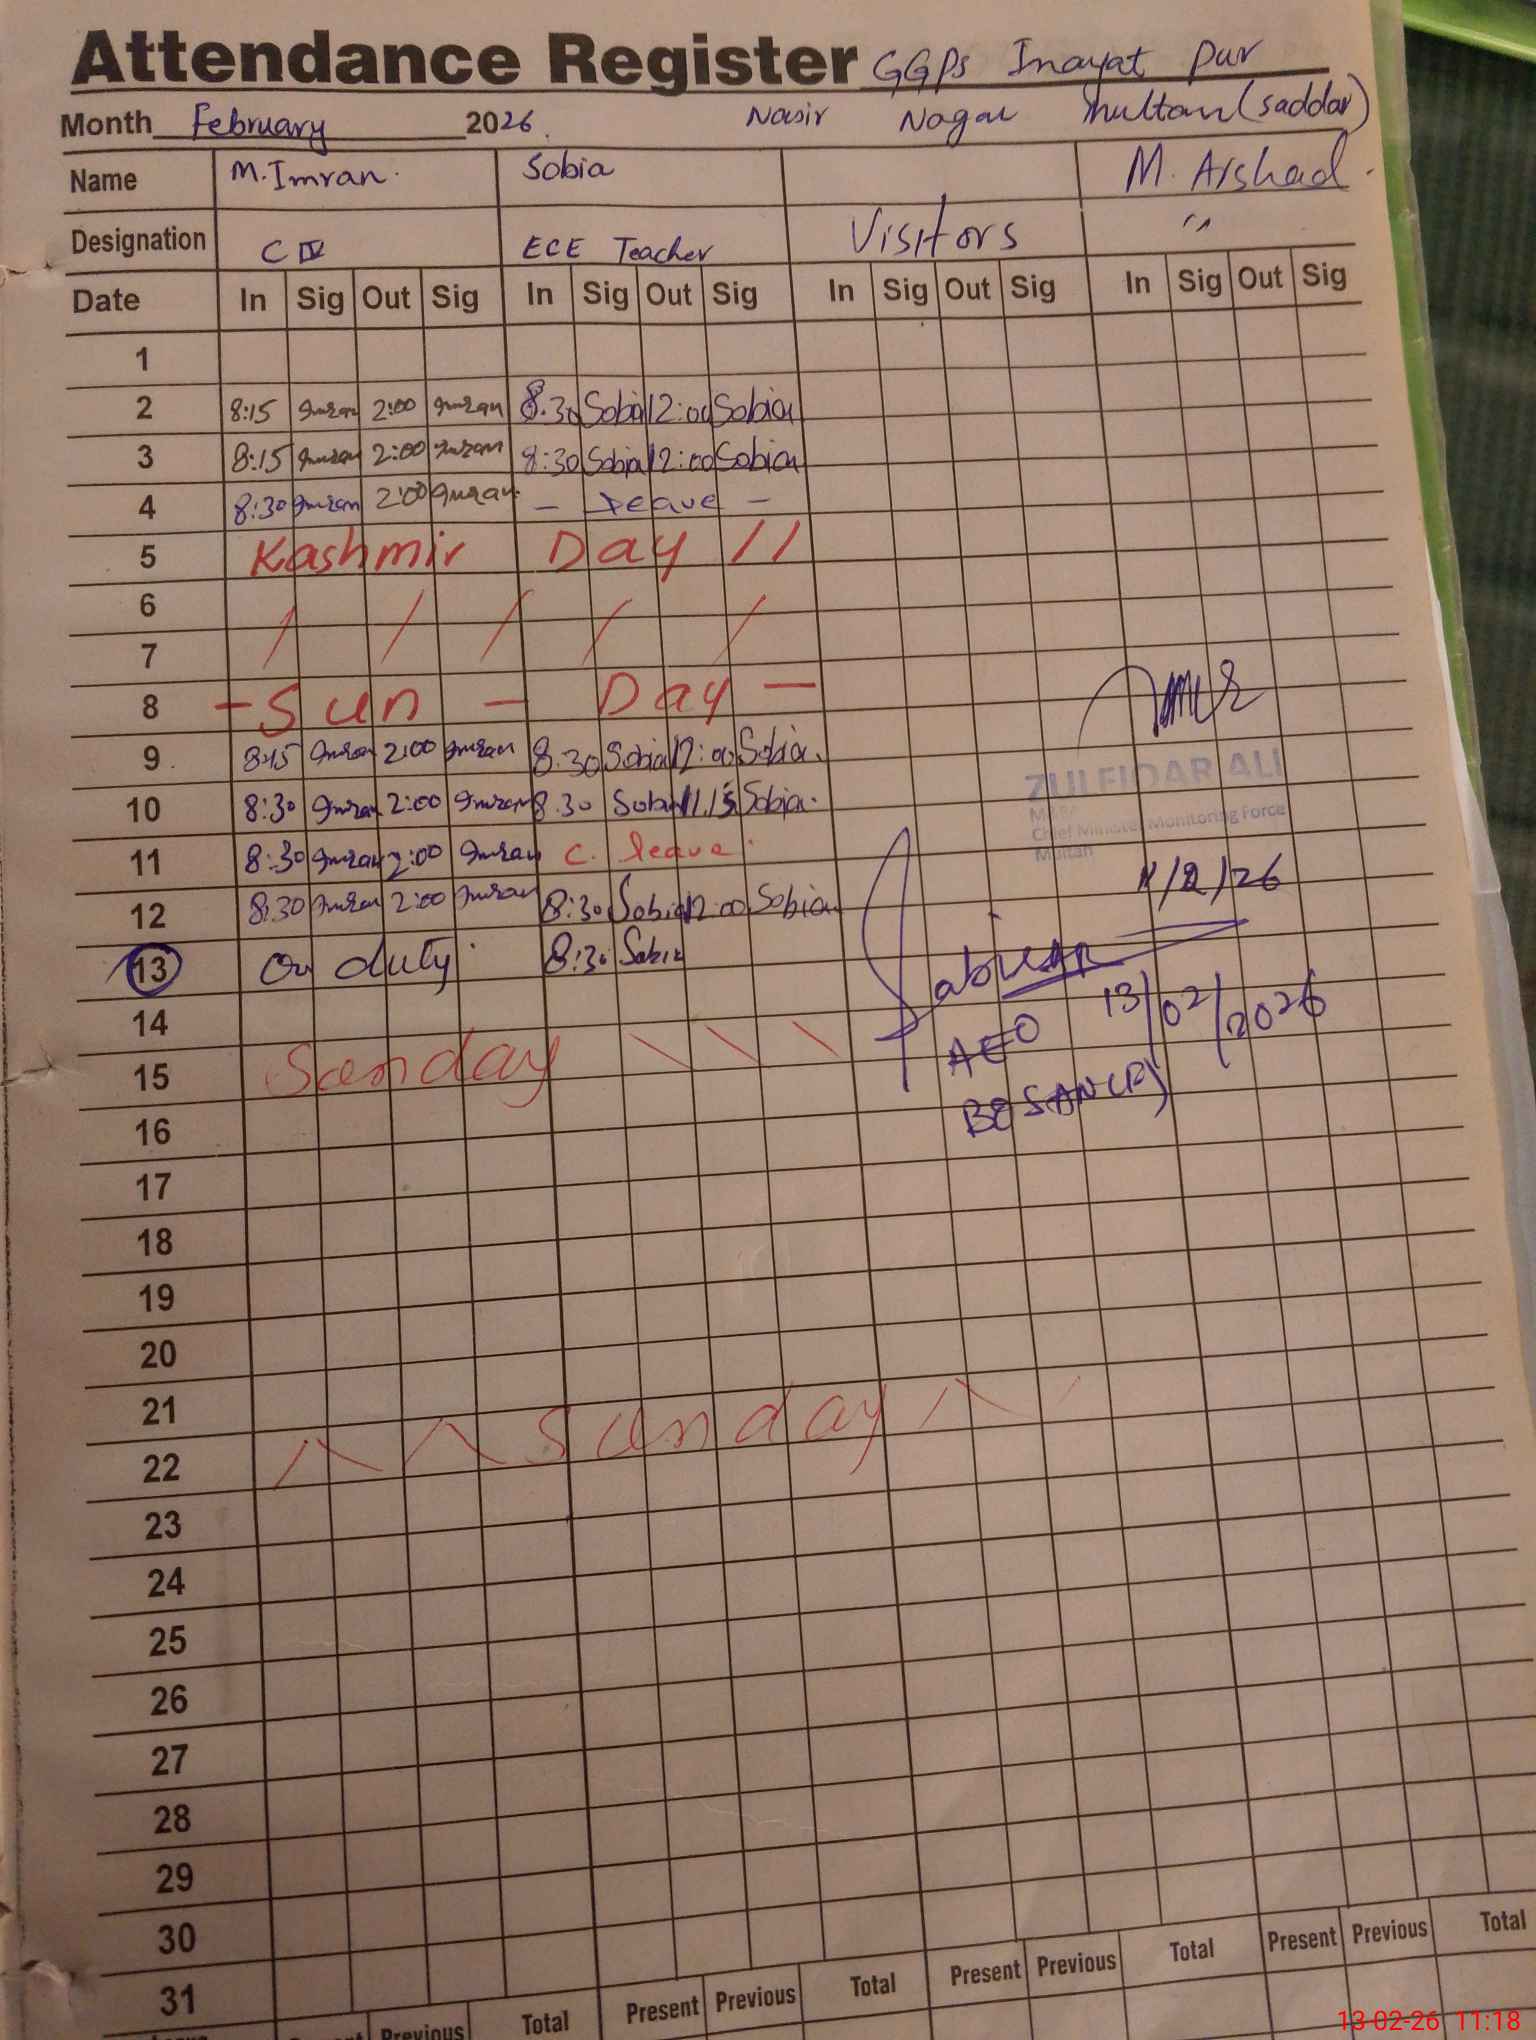 Attendance Register GGPS Inayat Pur
Month February 2026. Nasir Nagar Multan (Saddar)
Name M. Imran. Sobia M. Arshad.
Designation C IV ECE Teacher Visitors "
Date In Sig Out Sig In Sig Out Sig In Sig Out Sig In Sig Out Sig
1
2 8:15 Imran 2:00 Imran 8.30 Sobia 12:00 Sobia
3 8:15 Imran 2:00 Imran 8:30 Sobia 12:00 Sobia
4 8:30 Imran 2:00 Imran - Leave -
5 Kashmir Day //
6
7 / / / / /
8 - Sun - Day -
9 8:15 Imran 2:00 Imran 8.30 Sobia 12:00 Sobia.
10 8:30 Imran 2:00 Imran 8.30 Sobia 11.15 Sobia.
ZULFIQAR ALI
Chief Minister Monitoring Force
Multan
11 8:30 Imran 2:00 Imran C. leave.
/2/26
12 8:30 Imran 2:00 Imran 8:30 Sobia 12:00 Sobia
13 On duty 8:30 Sobia
13/02/2026
14
AEO
15 Sunday \ \ \
BOSAN(F)
16
17
18
19
20
21
22 Sunday
23
24
25
26
27
28
29
30
31
Present Previous Total Present Previous Total Present Previous Total Present Previous Total
13-02-26 11:18